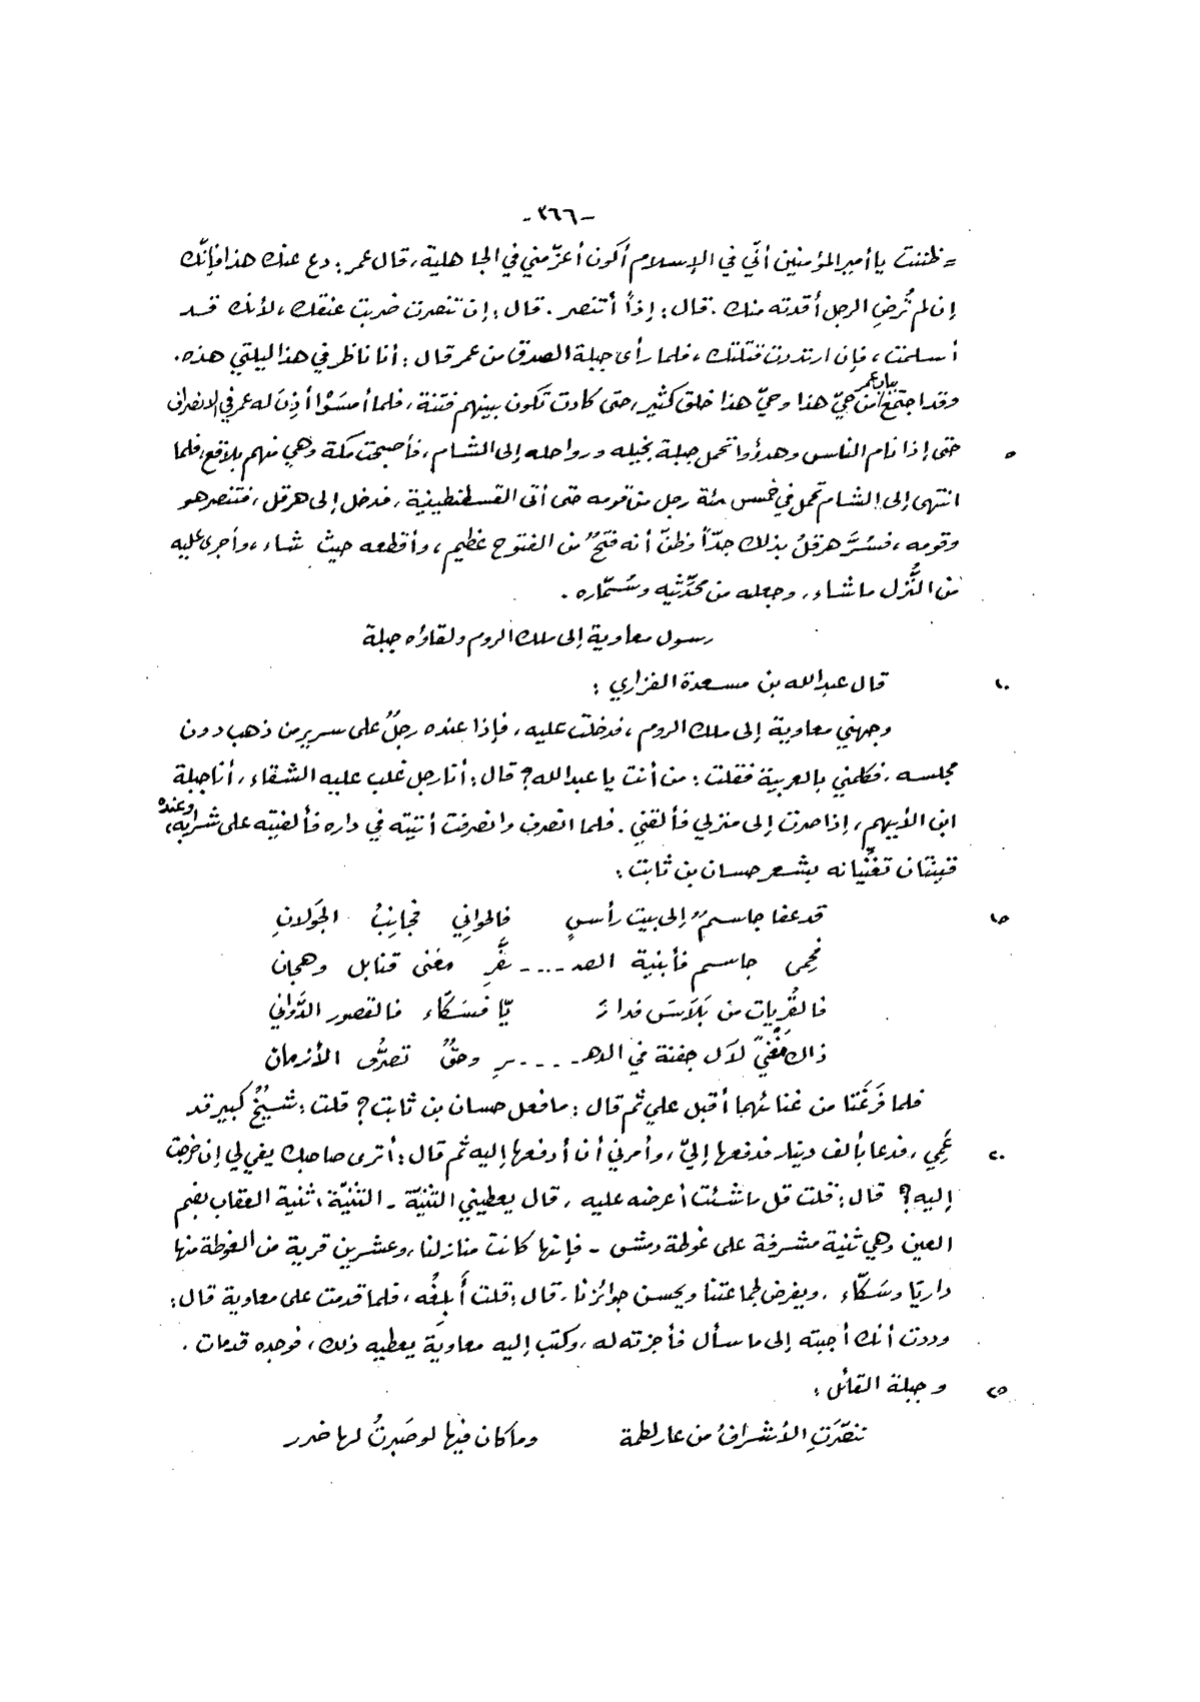 -٣٦٦-
= ظننت يا أمير المؤمنين أنّي في الإسلام أكون أعزّ مني في الجاهلية، قال عمر: دع عنك هذا فإنّك
إن لم تُرضِ الرجل أقدته منك. قال: إذاً أتنصر. قال: إن تنصرت ضربت عنقك، لأنك قد
أسلمت، فإن ارتددت قتلتك، فلما رأى جبلة الصدق من عمر قال: أنا ناظر في هذا ليلتي هذه.
وقد اجتمع بباب عمر من حيّ هذا وحيّ هذا خلق كثير، حتى كادت تكون بينهم فتنة، فلما أمسَوْا أذِنَ له عمر في الانصراف
٥ حتى إذا نام الناس وهدؤوا تحمل جبلة بخيله ورواحله إلى الشام، فأصبحت مكة وهي منهم بلاقع، فلما
انتهى إلى الشام تحمل في خمس مئة رجل من قومه حتى أتى القسطنطينية، فدخل إلى هرقل، فتنصر هو
وقومه، فسُرَّ هرقلُ بذلك جدّاً وظنّ أنه فتحٌ من الفتوح عظيم، وأقطعه حيث شاء، وأجرى عليه
من النُّزل ما شاء، وجعله من محدّثيه وسُمّاره.
رسول معاوية إلى ملك الروم ولقاؤه جبلة
١٠ قال عبد الله بن مسعدة الفزاري:
وجهني معاوية إلى ملك الروم، فدخلت عليه، فإذا عنده رجلٌ على سريرٍ من ذهب دون
مجلسه، فكلمني بالعربية فقلت: من أنت يا عبد الله؟ قال: أنا رجل غلب عليه الشقاء، أنا جبلة
ابن الأيهم، إذا صرت إلى منزلي فألقني. فلما انصرف وانصرفت أتيته في داره فألفيته على شرابه، وعنده
قينتان تغنّيانه بشعر حسان بن ثابت:
١٥ قد عفا جاسمٌ إلى بيت رأسٍ فالحواني فجانِبُ الجَولانِ
فحِمى جاسم فأبنية الصد ..... ـفَّرِ مغنى قنابل وهجان
فالقُرِيات من بَلَاسَ فدارَ يّا فسَكّاء فالقصور الدَّواني
ذاك مَغْنيً لآل جفنة في الدهـ ..... ـرِ وحقٌ تصرُّف الأزمان
فلما فَرَغَتا من غنائهما أقبل علي ثم قال: ما فعل حسان بن ثابت؟ قلت: شيخٌ كبير قد
٢٠ عَمِي، فدعا بألف دينار فدفعها إليّ، وأمرني أن أدفعها إليه ثم قال: أترى صاحبك يفي لي إن خرجت
إليه؟ قال: قلت قل ما شئت أعرضه عليه، قال يعطيني الثنيّة - الثنيّة: ثنية العقاب بضم
العين وهي ثنية مشرفة على غوطة دمشق - فإنها كانت منازلنا، وعشرين قرية من الغوطة منها
داريّا وسَكّاء، ويفرض لجماعتنا ويحسن جوائزنا، قال: قلت أُبلِغُه، فلما قدمت على معاوية قال:
وددت أنك أجبته إلى ما سأل فأجزته له، وكتب إليه معاوية يعطيه ذلك، فوجده قد مات.
٢٥ وجبلة القائل:
تنصّرَتِ الأشرافُ من عار لطمة وما كان فيها لو صَبرتُ لها ضرر